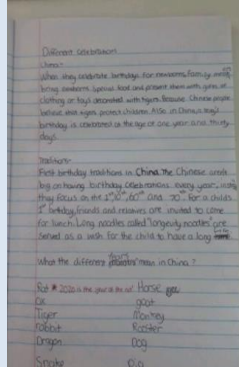 Different Celebration
China:
When they celebrate birthdays for newborns, family
bring newborns special food and present them with gifts of
clothing or toys decorated with tigers. Because Chinese people
believe that tigers protect children. Also in China, a boy's
birthday is celebrated at the age of one year and thirty
days.
Traditions:
First birthday traditions in China. The Chinese
birthday celebrations every year,
they focus on the 1st, 10th, 60th and 70th. For a child's
1st birthday, friends and relatives are invited to come
for lunch. Long noodles called "longevity noodles" are
served as a wish for the child to have a long
What the different years mean in China?
Rat 2020 is the year of the rat Horse
Ox goat
Tiger Monkey
rabbit Rooster
Dragon Dog
Snake Pig